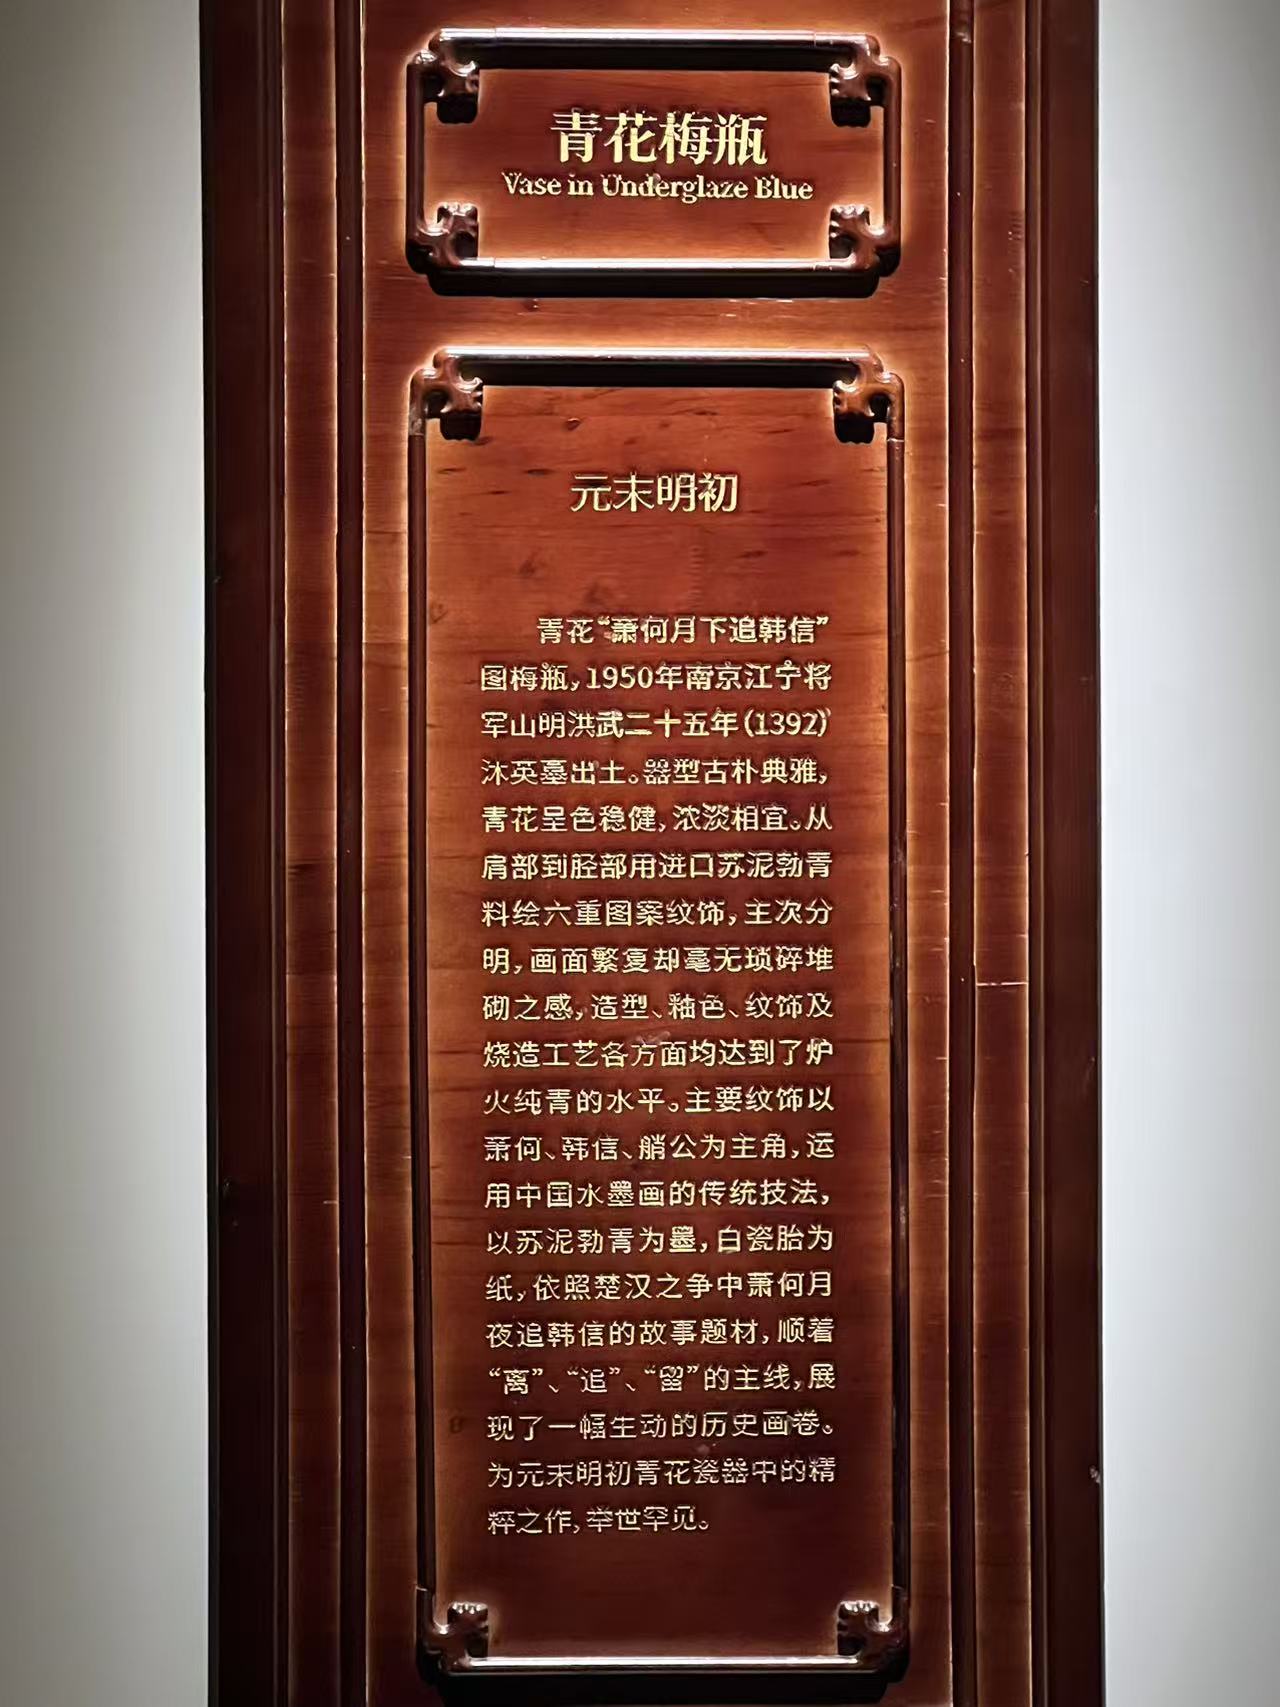 青花梅瓶
Vase in Underglaze Blue
元末明初
青花“萧何月下追韩信”
图梅瓶，1950年南京江宁将
军山明洪武二十五年（1392）
沐英墓出土。器型古朴典雅，
青花呈色稳健，浓淡相宜。从
肩部到胫部用进口苏泥勃青
料绘六重图案纹饰，主次分
明，画面繁复却毫无琐碎堆
砌之感，造型、釉色、纹饰及
烧造工艺各方面均达到了炉
火纯青的水平。主要纹饰以
萧何、韩信、艄公为主角，运
用中国水墨画的传统技法，
以苏泥勃青为墨，白瓷胎为
纸，依照楚汉之争中萧何月
夜追韩信的故事题材，顺着
“离”、“追”、“留”的主线，展
现了一幅生动的历史画卷。
为元末明初青花瓷器中的精
粹之作，举世罕见。